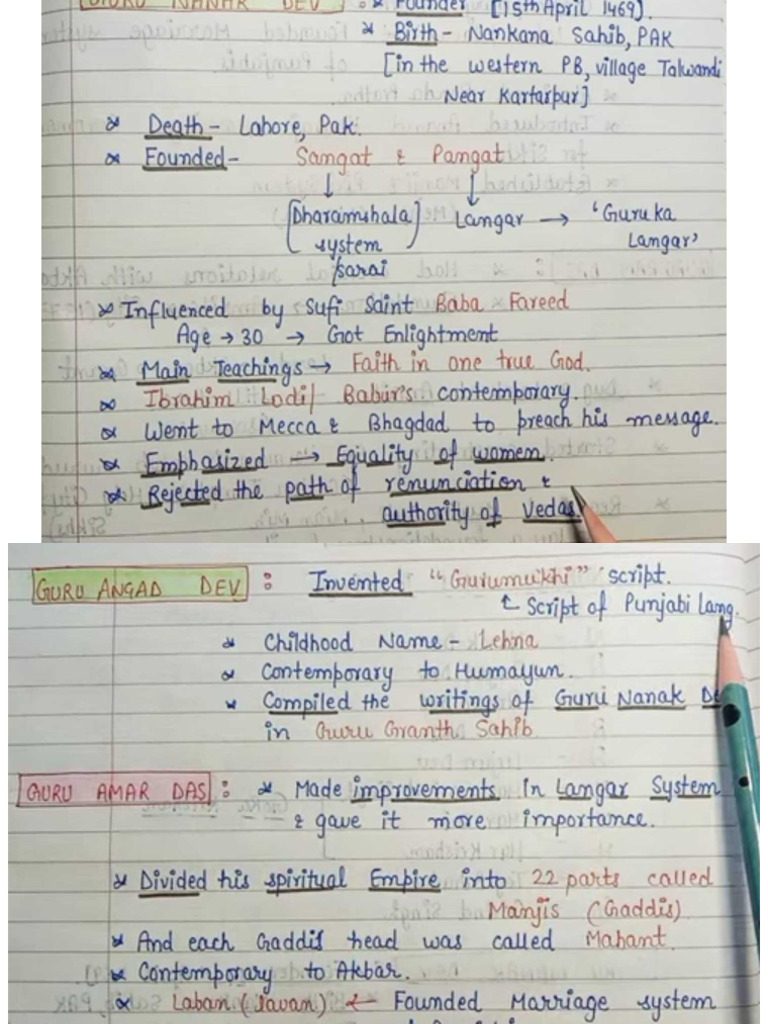 GURU NANAK DEV : * Founder [15th April 1469].
* Birth - Nankana Sahib, PAK
[in the western PB, village Talwandi
Near Kartarpur]
* Death - Lahore, Pak.
* Founded - Samgat & Pangat
↓ ↓
[Dharamshala system sarai] Langar → 'Guru ka Langar'
* Influenced by Sufi Saint Baba Fareed
Age → 30 → Got Enlightment
* Main Teachings → Faith in one true God.
* Ibrahim Lodi / Babur's contemporary.
* Went to Mecca & Bhagdad to preach his message.
* Emphasized → Equality of women.
* Rejected the path of renunciation &
authority of Vedas
GURU ANGAD DEV : Invented "Gurumukhi" script.
↳ Script of Punjabi Lang.
* Childhood Name - Lehna
* Contemporary to Humayun.
* Compiled the writings of Guru Nanak De
in Guru Granth Sahib
GURU AMAR DAS : * Made improvements in Langar System
& gave it more importance.
* Divided his spiritual Empire into 22 parts called
Manjis (Gaddis)
* And each Gaddis head was called Mahant.
* Contemporary to Akbar.
* Laban (Lavan) ← Founded Marriage system